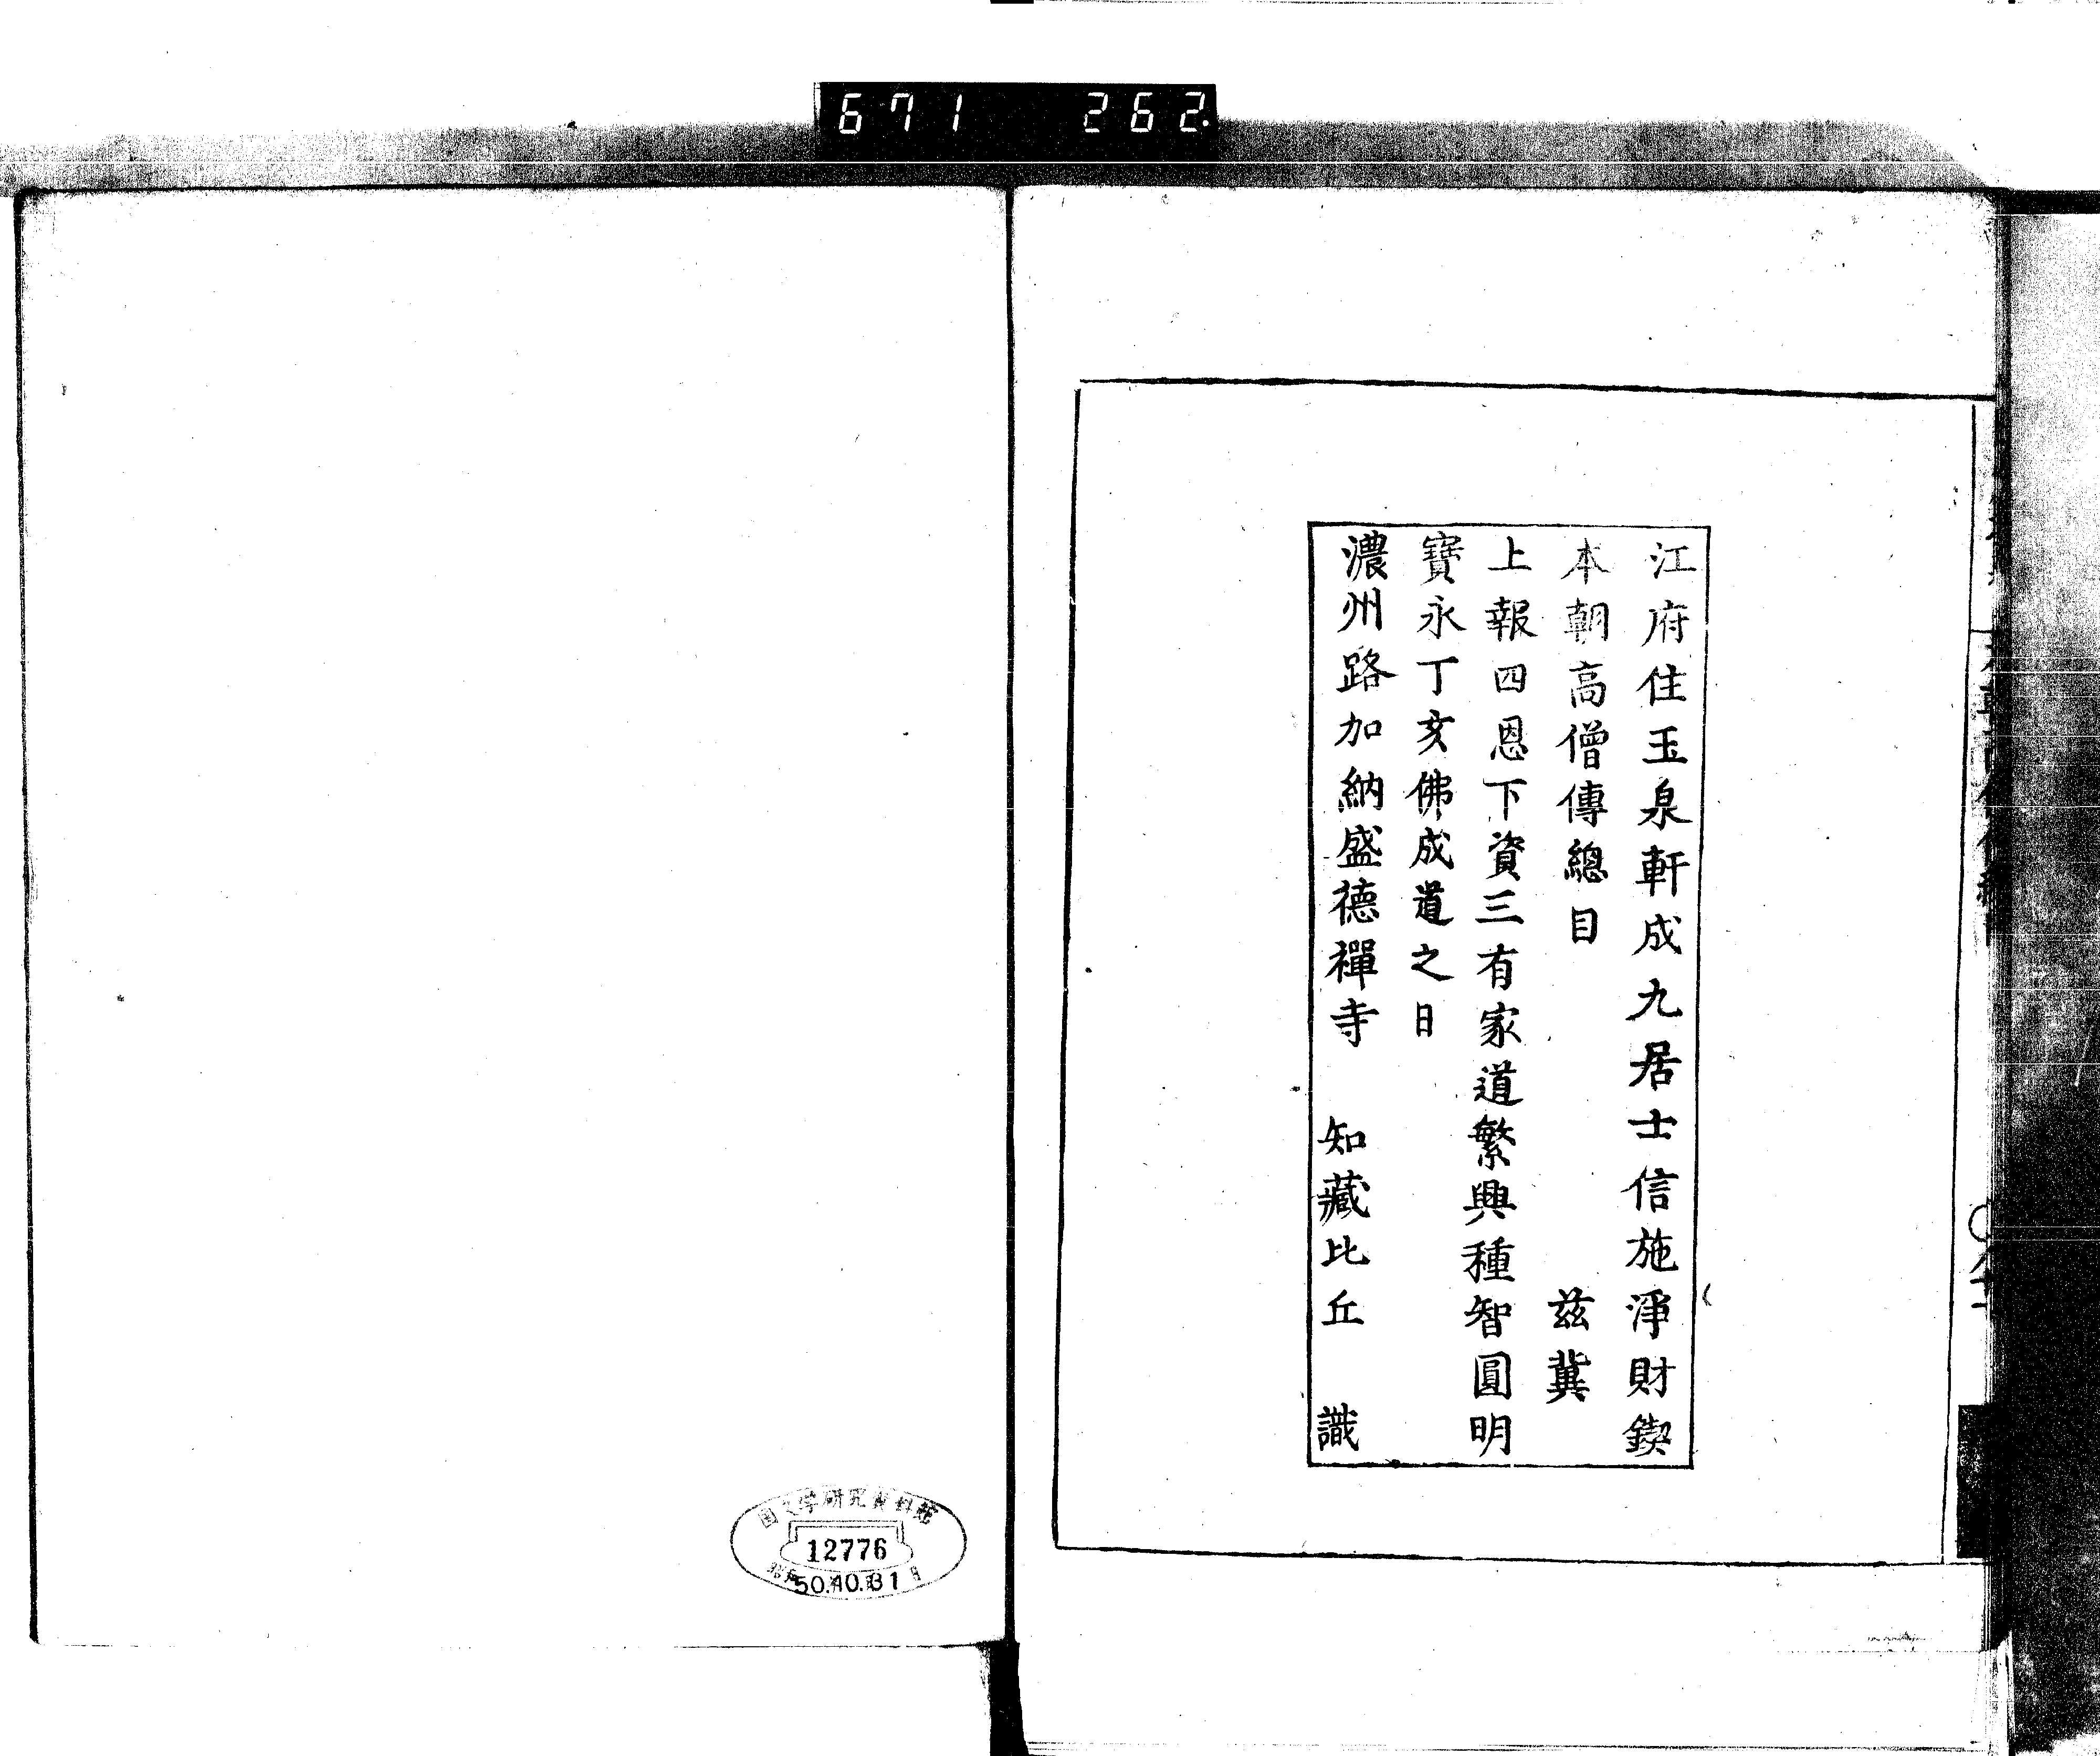 671 262
江府住玉泉軒成九居士信施淨財鍥
本朝高僧傳總目 茲冀
上報四恩下資三有家道繁興種智圓明
寶永丁亥佛成道之日
濃州路加納盛德禪寺 知藏比丘 識
国文学研究資料館
12776
50.10.31